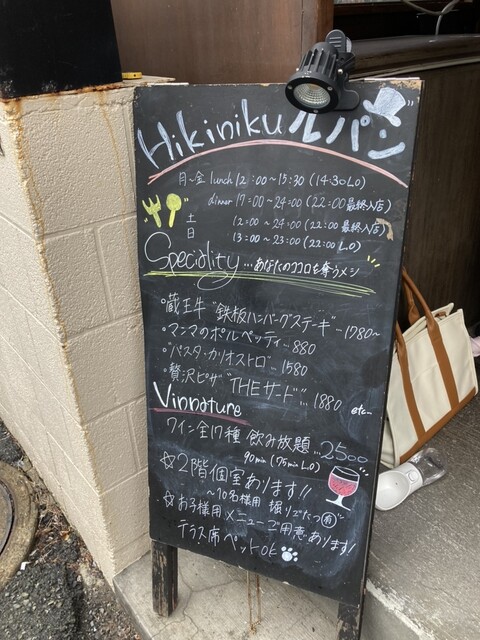 Hikinikuルパン
月〜金 lunch 12:00〜15:30 (14:30 LO)
dinner 17:00〜24:00 (22:00 最終入店)
土 12:00〜24:00 (22:00 最終入店)
日 13:00〜23:00 (22:00 L.O)
Speciality...あなたのココロを奪うメシ
・蔵王牛 "鉄板ハンバーグステーキ"...1780〜
・マンマのポルペッティ...880
・"パスタ・カリオストロ"...1580
・贅沢ピザ "THEサード"...1880 etc...
Vinnature
ワイン全17種 飲み放題...2500
90min (75min L.O)
☆2階個室あります!!
〜10名様用 掘りごたつ㊒
☆お子様用メニューご用意あります!
テラス席ペットOK